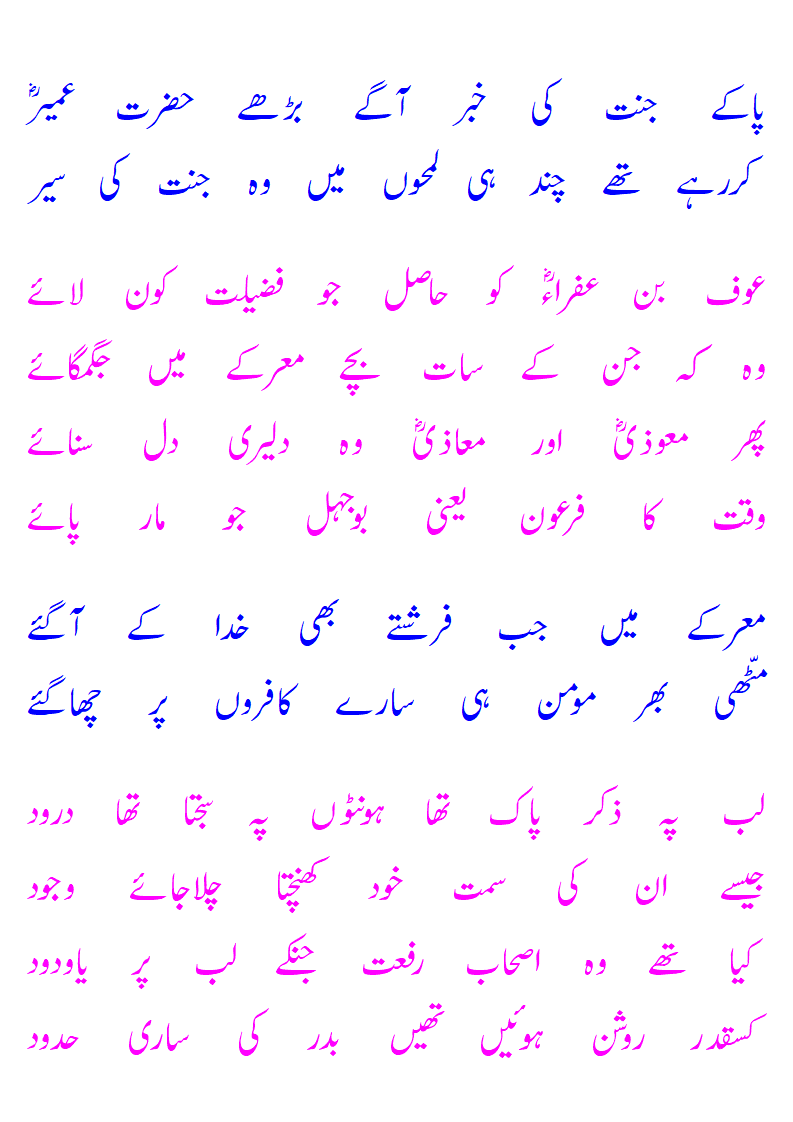 پاکے جنت کی خبر آگے بڑھے حضرت عمیرؓ
کررہے تھے چند ہی لمحوں میں وہ جنت کی سیر
عوف بن عفراءؓ کو حاصل جو فضیلت کون لائے
وہ کہ جن کے سات بچے معرکے میں جگمگائے
پھر معوذیؓ اور معاذیؓ وہ دلیری دل سنائے
وقت کا فرعون یعنی بوجہل جو مار پائے
معرکے میں جب فرشتے بھی خدا کے آگئے
مٹّھی بھر مومن ہی سارے کافروں پر چھاگئے
لب پہ ذکر پاک تھا ہونٹوں پہ سجتا تھا درود
جیسے ان کی سمت خود کھنچتا چلاجائے وجود
کیا تھے وہ اصحاب رفعت جنکے لب پر یاودود
کسقدر روشن ہوئیں تھیں بدر کی ساری حدود